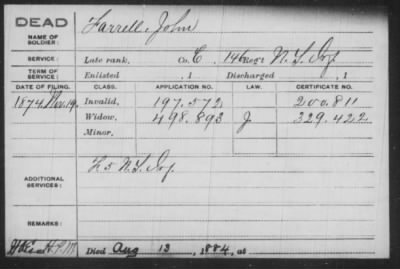 DEAD
NAME OF SOLDIER: Farrell, John
SERVICE: Late rank, Co. C, 146 Reg't N.Y. Inf
TERM OF SERVICE: Enlisted , 1 Discharged , 1
DATE OF FILING. CLASS. APPLICATION NO. LAW. CERTIFICATE NO.
1874 Nov. 19. Invalid, 197.572 200.811
Widow, 498.893 J 329.422
Minor,
ADDITIONAL SERVICES: 5 N.Y. Inf
REMARKS:
Died Aug 13, 1884, at